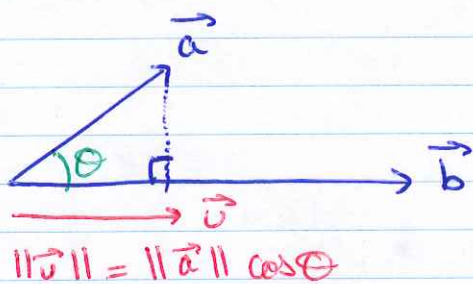 →a
θ
→b
→v
||→v|| = ||→a|| cosθ